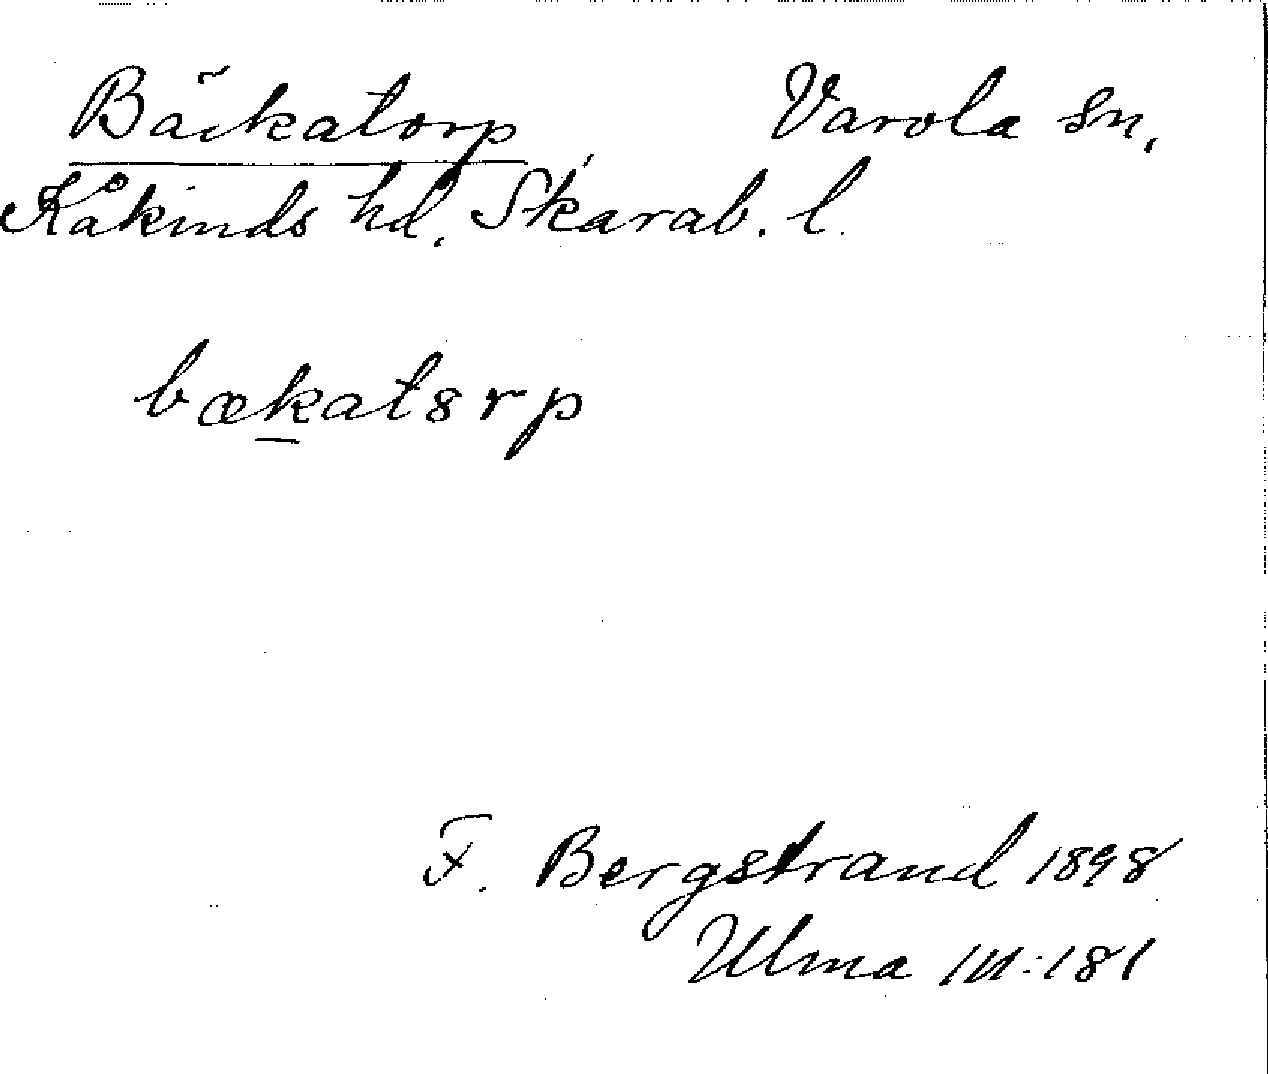 Bäckatorp, Varola sn,
Kåkinds hd, Skarab. l.
bækatsrp
F. Bergstrand 1898
Ulma 111:181